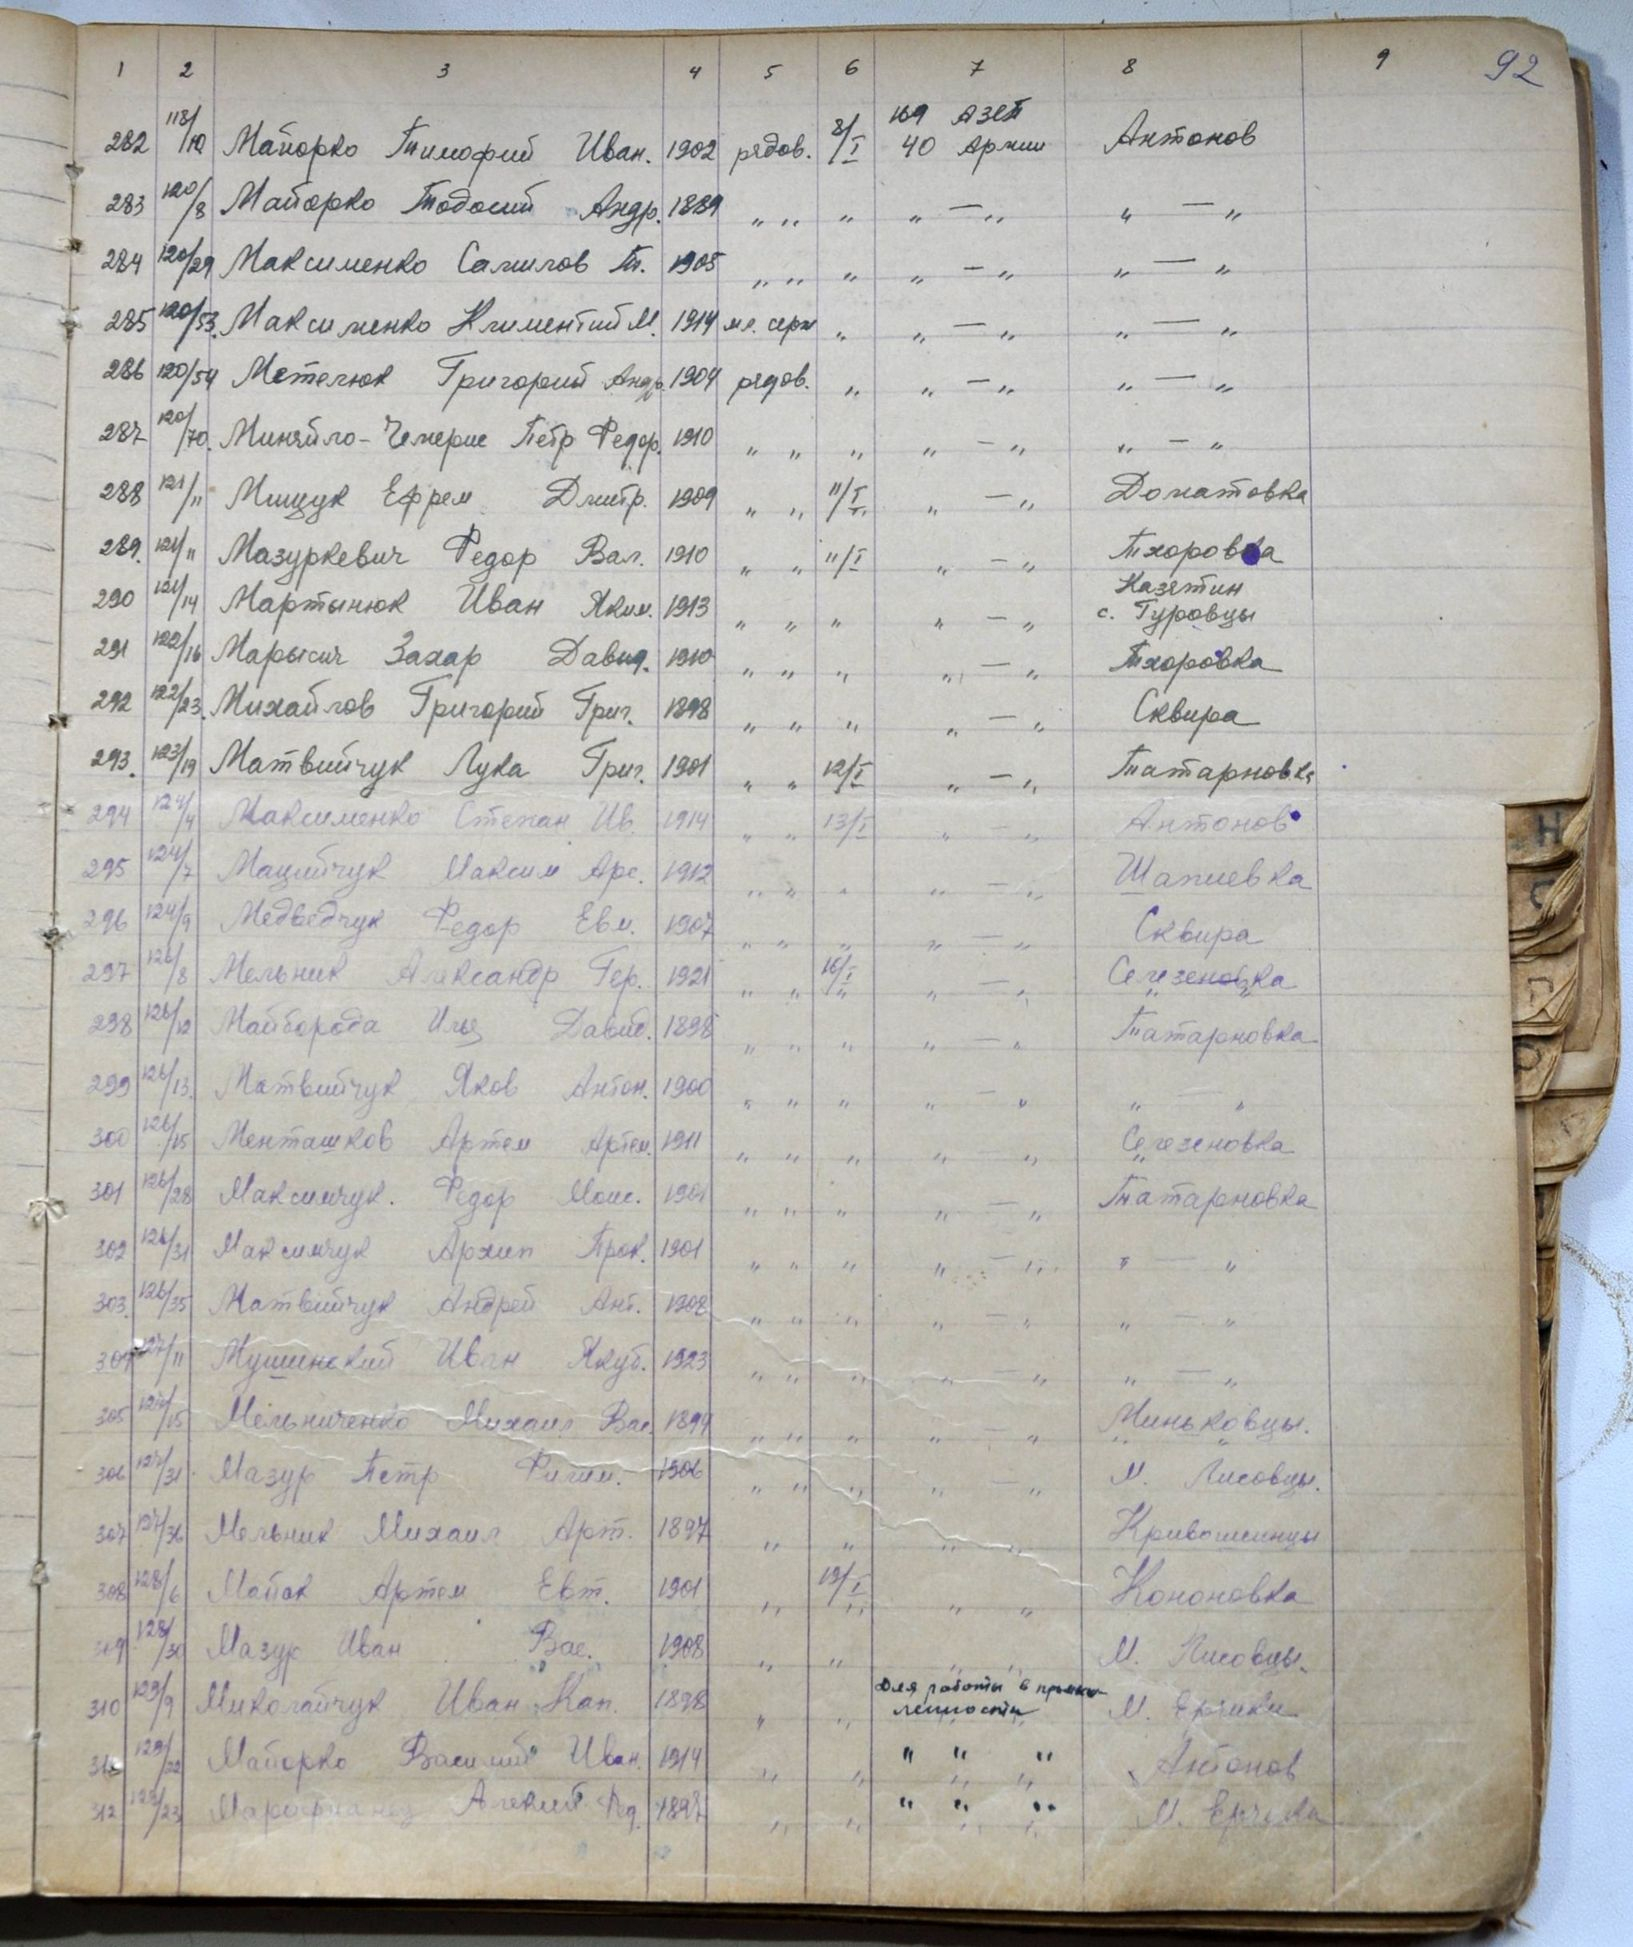 1 2 3 4 5 6 7 8 9 92
282 118/10 Майорко Тимофий Иван. 1902 рядов. 8/I 169 АЗСП 40 Армии Антонов
283 120/8 Майорко Тодосий Андр. 1889 „ „ „ „ — „ „ — „
284 120/29 Максименко Самилов Т. 1905 „ „ „ „ — „ „ — „
285 120/53. Максименко Климентий М. 1914 мл. серж „ „ — „ „ — „
286 120/54 Метелюк Григорий Андр. 1904 рядов. „ „ — „ „ — „
287 120/70. Миняйло-Чемерис Петр Федор. 1910 „ „ „ „ — „ „ — „
288 121/11 Мищук Ефрем Дмитр. 1909 „ „ 11/I „ — „ Доматовка
289. 121/11 Мазуркевич Федор Вал. 1910 „ „ 11/I „ — „ Тхоровка
290 121/14 Мартынюк Иван Яким. 1913 „ „ „ „ — „ Казятин с. Гуровцы
291 122/16 Марысич Захар Давид. 1910 „ „ „ „ — „ Тхоровка
292 122/23. Михайлов Григорий Григ. 1898 „ „ „ „ — „ Сквира
293. 123/19 Матвийчук Лука Григ. 1901 „ „ 12/I „ — „ Татарновка
294 124/4 Максименко Степан Ив. 1914 „ „ 13/I „ — „ Антонов
295 124/7 Мацийчук Максим Арс. 1912 „ „ „ „ — „ Шапиевка
296 124/9 Медведчук Федор Евм. 1907 „ „ „ „ — „ Сквира
297 126/8 Мельник Александр Гер. 1921 „ „ 16/I „ — „ Селезеновка
298 126/12 Майборода Илья Давид. 1898 „ „ „ „ — „ Татарновка
299 126/13. Матвийчук Яков Антон. 1900 „ „ „ „ — „ „ — „
300 126/15 Менташков Артем Артем. 1911 „ „ „ „ — „ Селезеновка
301 126/28 Максимчук. Федор Моис. 1901 „ „ „ „ — „ Татарновка
302 126/31 Максимчук Архип Прок. 1901 „ „ „ „ — „ „ — „
303. 126/35 Матвийчук Андрей Ант. 1908 „ „ „ „ — „ „ — „
304 127/11 Мушинский Иван Якуб. 1923 „ „ „ „ — „ „ — „
305 127/15 Мельниченко Михаил Вас. 1894 „ „ „ „ — „ Миньковцы.
306 127/31 Мазур Петр Филим. 1906 „ „ „ „ — „ М. Лисовцы.
307 127/36 Мельник Михаил Арт. 1897 „ „ „ „ Кривошеинцы
308 128/6 Мачок Артем Евт. 1901 „ 19/I „ „ Кононовка
309 128/30 Мазур Иван Вас. 1908 „ „ „ „ М. Лисовцы.
310 129/9 Миколайчук Иван Кап. 1898 „ „ Для работы в промышленности М. Ерчики
311 129/22 Майорко Василий Иван. 1914 „ „ „ „ „ Антонов
312 129/23 Алексий Фед. 1897 „ „ „ „ „ М. Ерчики
Н
С
П
Р